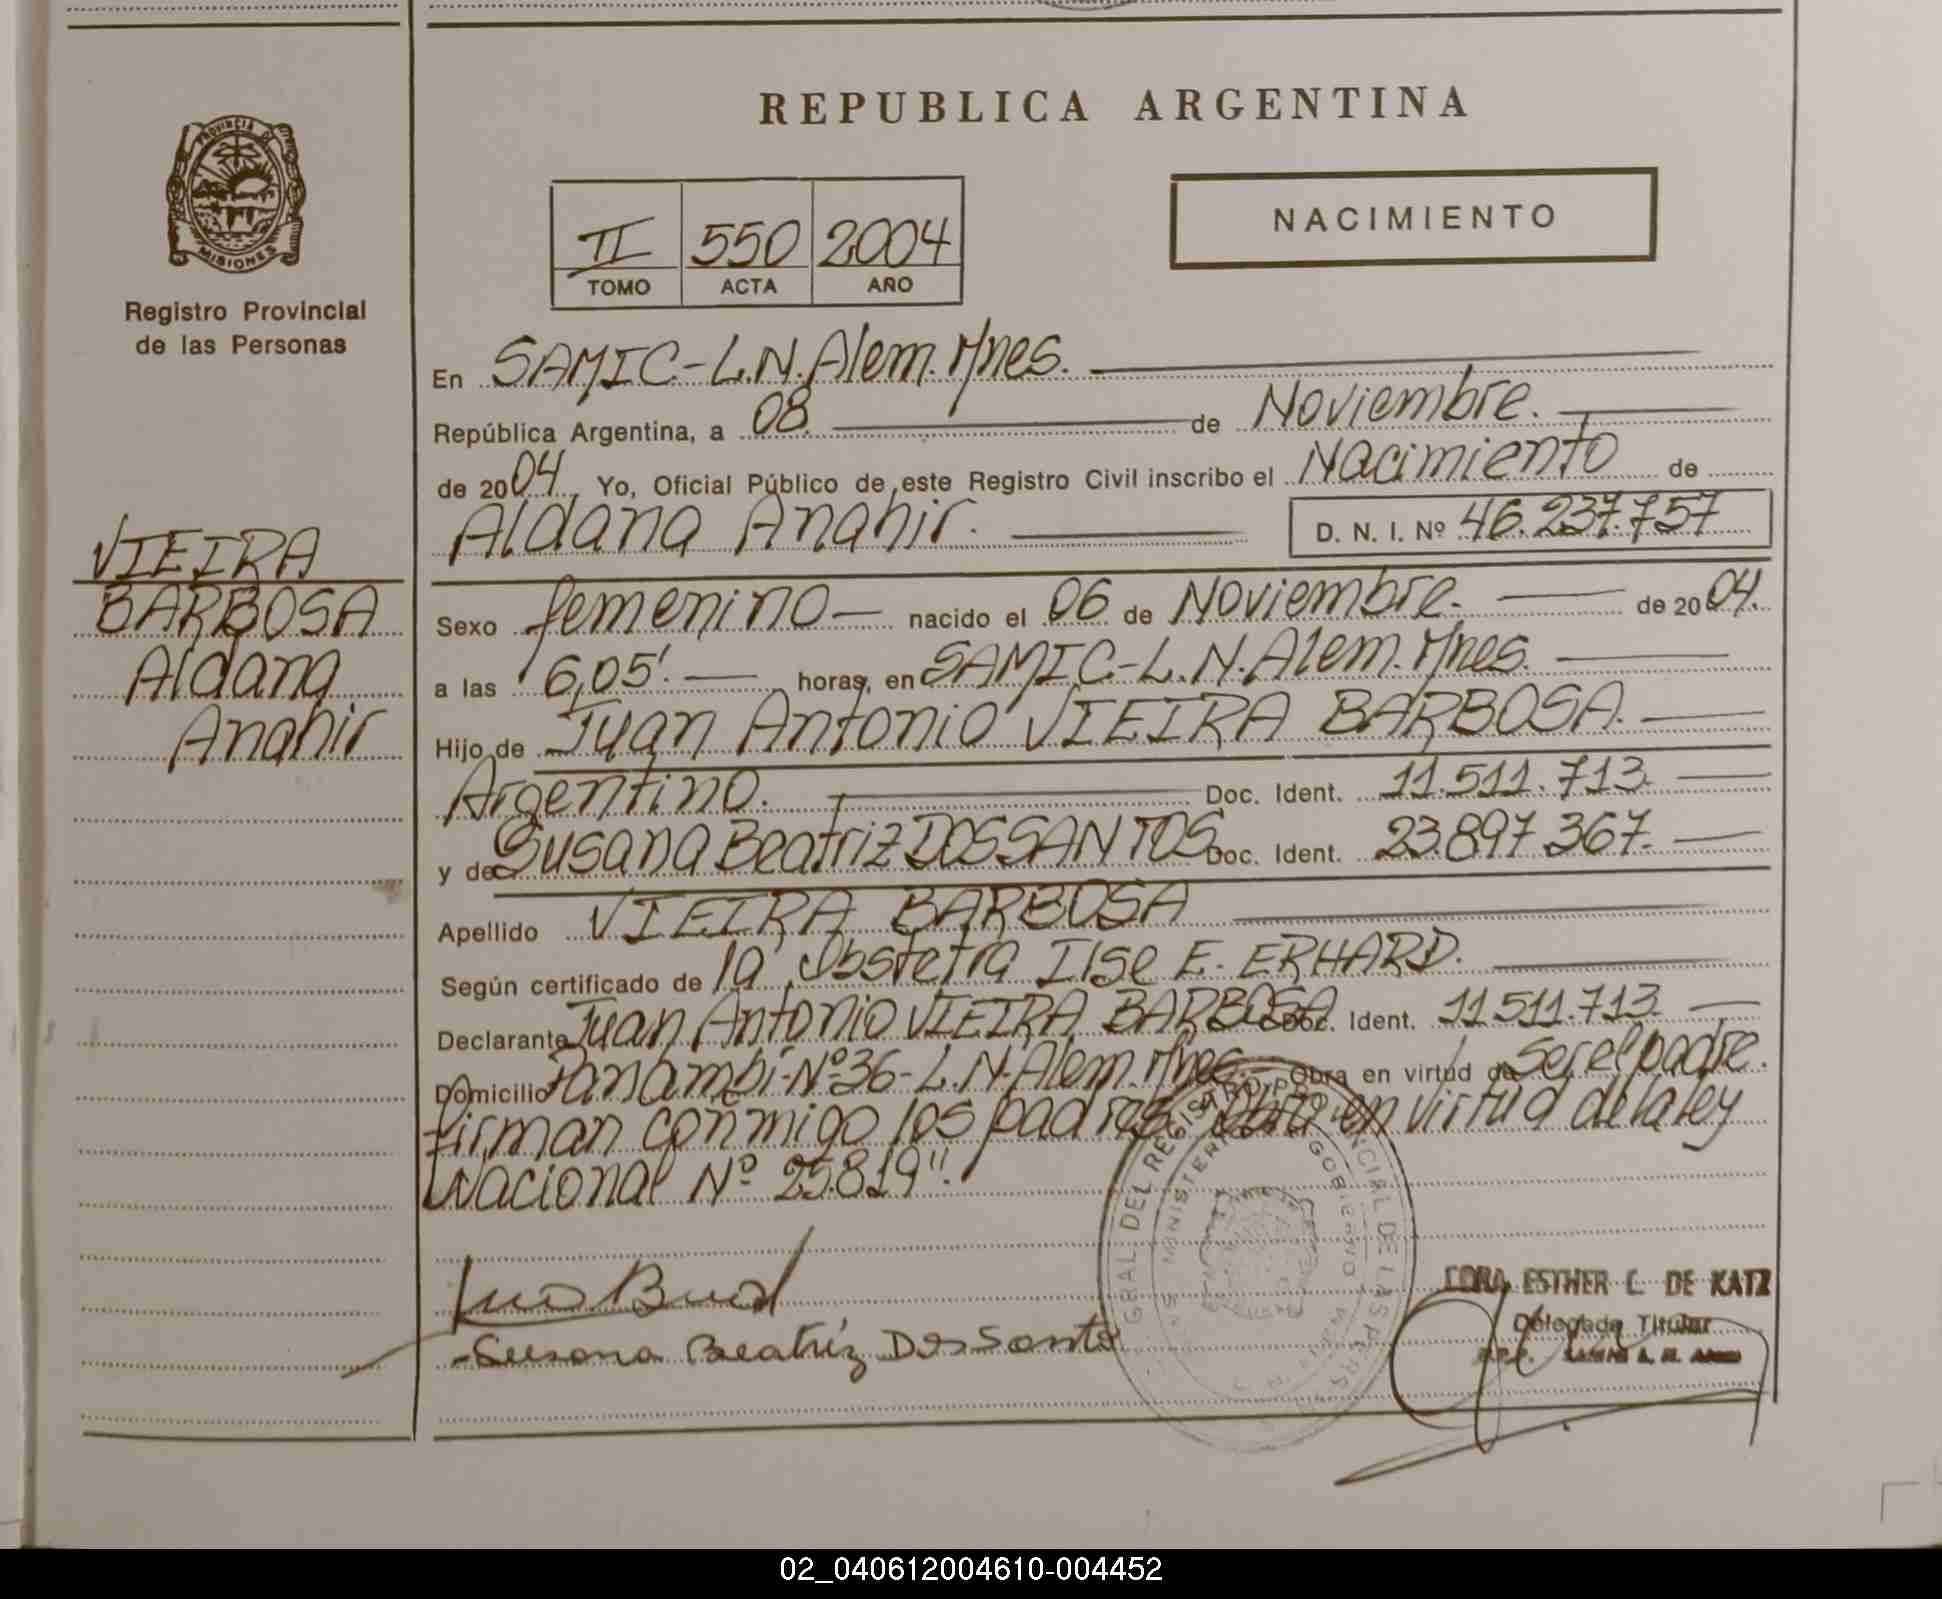 REPUBLICA ARGENTINA
PROVINCIA DE
MISIONES
Registro Provincial
de las Personas
NACIMIENTO
II 550 2004
TOMO ACTA AÑO
En SAMIC-L.N.Alem.Mnes.
República Argentina, a 08 de Noviembre.
de 2004. Yo, Oficial Público de este Registro Civil inscribo el Nacimiento de
Aldana Anahir. D. N. I. Nº 46.237.757
VIEIRA
BARBOSA
Aldana
Anahir
Sexo femenino nacido el 06 de Noviembre. de 2004.
a las 6,05'. horas, en SAMIC-L.N.Alem.Mnes.
Hijo de Juan Antonio VIEIRA BARBOSA.
Argentino. Doc. Ident. 11.511.713.
y de Susana Beatriz DOS SANTOS Doc. Ident. 23.897.367.
Apellido VIEIRA BARBOSA
Según certificado de la Obstetra Ilse E. ERHARD.
Declarante Juan Antonio VIEIRA BARBOSA Doc. Ident. 11.511.713.
Domicilio Panambí-Nº36-L.N.Alem.Mnes.- Obra en virtud de Ser el padre.
firman conmigo los padres. Obra en virtud de la ley
Nacional Nº 25.819".
Susana Beatriz Dos Santos
GRAL. DEL REGISTRO PROVINCIAL DE LAS PERS
MINISTERIO GOBIERNO
CORA ESTHER C. DE KATZ
Delegada Titular
02_040612004610-004452